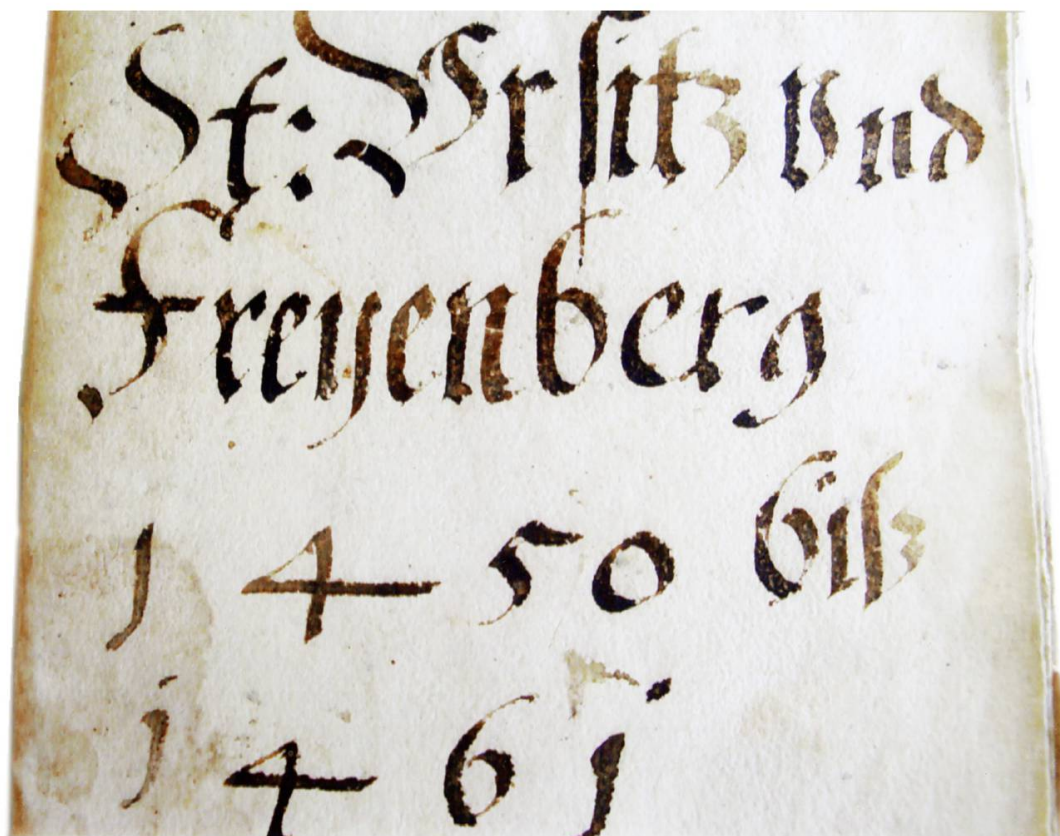 St: Vrsitz vnd
Freyenberg
1450 bisz
1461